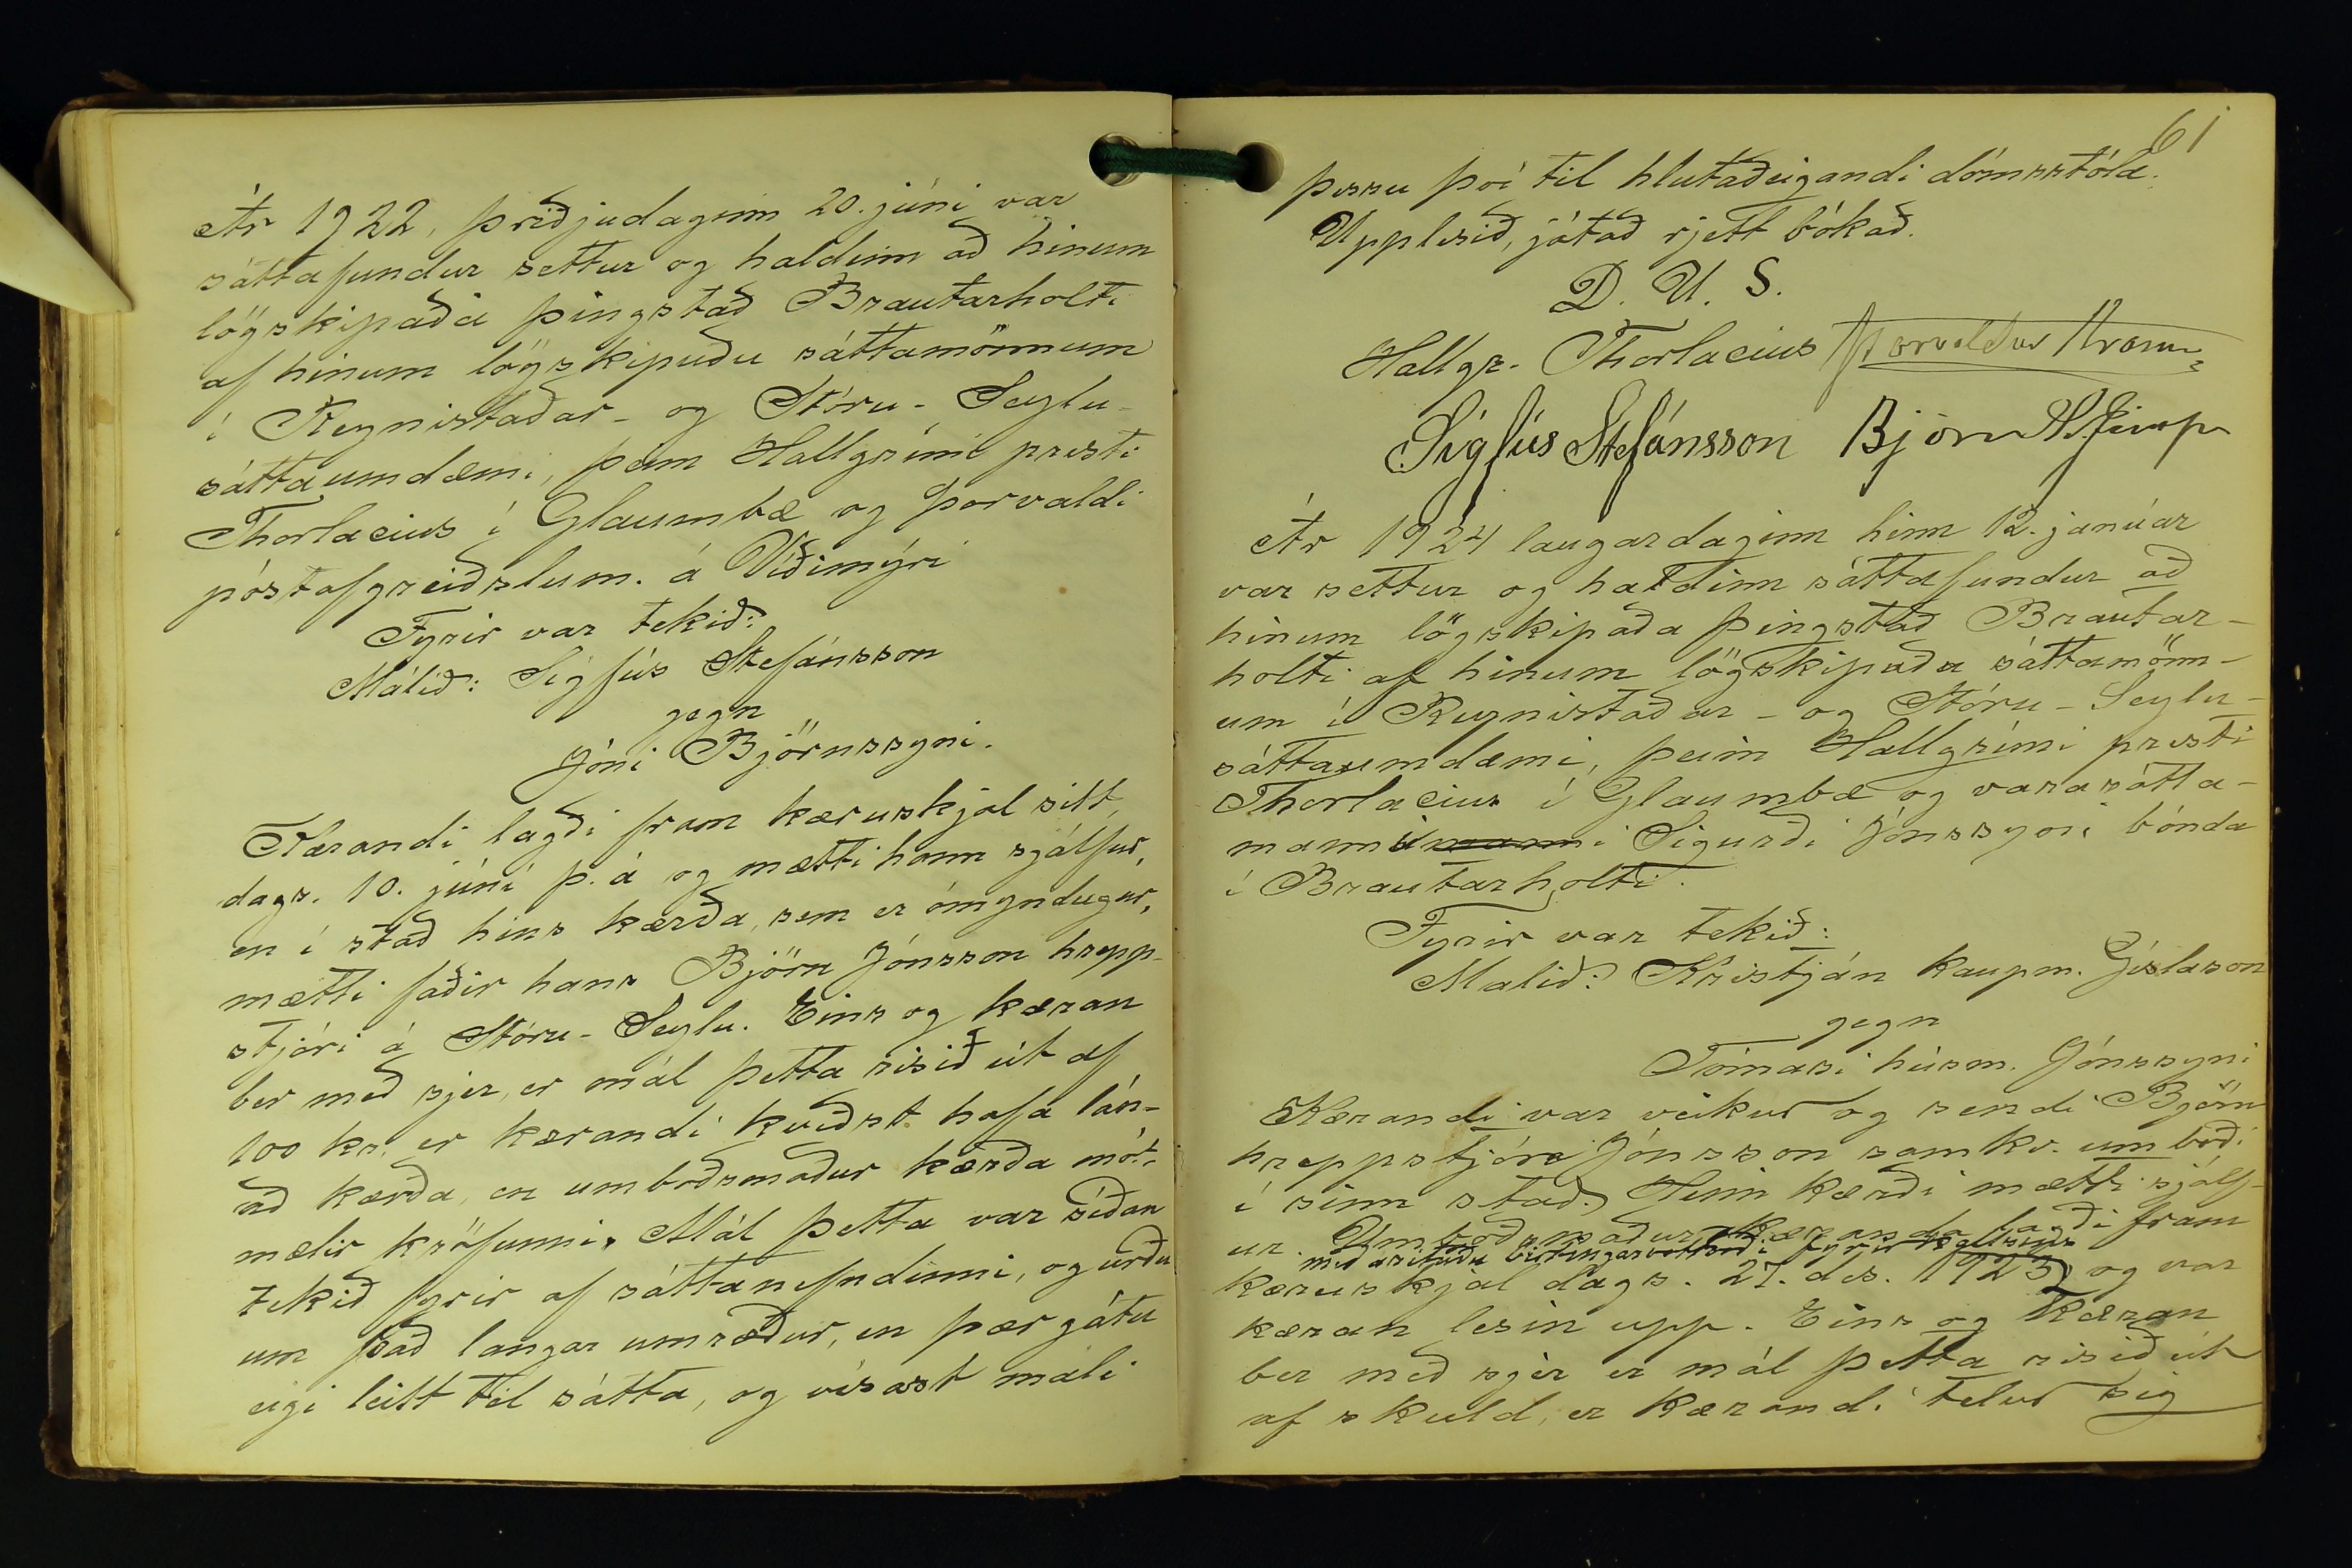 Ár 1922, þriðjudaginn 20. júní var
sáttafundur settur og haldinn að hinum
lögskipaða þingstað Brautarholti
af hinum lögskipuðu sáttamönnum
í Reynistaðar- og Stóru-Seylu-
sáttaumdæmi, þeim Hallgrími presti
Thorlacius í Glaumbæ og Þorvaldi
póstafgreiðslum. á Víðimýri
Fyrir var tekið:
Málið: Sigfús Stefánsson
gegn
Jóni Björnssyni.
Kærandi lagði fram kæruskjal sitt,
dags. 10. júní þ. á og mætti hann sjálfur,
en í stað hins kærða, sem er ómyndugur,
mætti faðir hans Björn Jónsson hrepp-
stjóri á Stóru-Seylu. Eins og kæran
ber með sjer, er mál þetta risið út af
100 kr. er kærandi kveðst hafa lán-
að kærða, en umboðsmaður kærða mót-
mælir kröfunni. Mál þetta var síðan
tekið fyrir af sáttanefndinni, og urðu
um það langar umræður, en þær gátu
eigi leitt til sátta, og vísast máli
61
þessu því til hlutaðeigandi dómsstóla.
Upplesið, játað rjett bókað.
D. U. S.
Hallgr. Thorlacius Þorvaldur Arason
Sigfús Stefánsson Björn
Ár 1924 laugardaginn hinn 12. janúar
var settur og haldinn sáttafundur að
hinum lögskipaða þingstað Brautar-
holti af hinum lögskipaða sáttamönn-
um í Reynistaðar- og Stóru-Seylu-
sáttaumdæmi, þeim Hallgrími presti
Thorlacius í Glaumbæ og varasátta-
manni Sigurði Jónssyni bónda
í Brautarholti.
Fyrir var tekið:
Malið: Kristján kaupm. Gíslason
gegn
Tómasi húsm. Jónssyni
Kærandi var veikur og sendi Björn
hreppstjóra Jónsson samkv. umboði
í sinn stað. Hinn kærði mætti sjálf-
ur. Umboðsmaður kæranda lagði fram
með árituðu birtingarvottorði
kæruskjal dags. 27. des. 1923, og var
kæran lesin upp. Eins og kæran
ber með sjer er mál þetta risið út
af skuld, er kærandi telur sig